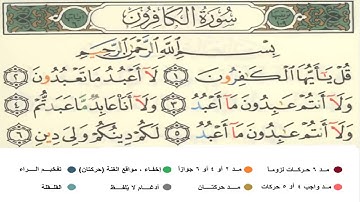 سُورَةُ الْكَافِرُونَ
بِسْمِ اللَّهِ الرَّحْمَٰنِ الرَّحِيمِ
قُلْ يَٰٓأَيُّهَا ٱلْكَٰفِرُونَ ١ لَآ أَعْبُدُ مَا تَعْبُدُونَ ٢
وَلَآ أَنتُمْ عَٰبِدُونَ مَآ أَعْبُدُ ٣ وَلَآ أَنَا۠ عَابِدٌ مَّا عَبَدتُّمْ ٤
وَلَآ أَنتُمْ عَٰبِدُونَ مَآ أَعْبُدُ ٥ لَكُمْ دِينُكُمْ وَلِىَ دِينِ ٦
مد ٦ حركات لزوماً مد ٢ أو ٤ أو ٦ جوازاً إخفاء ، مواقع الغنة (حركتان) تفخيم الراء
مد واجب ٤ أو ٥ حركات مد حركتان إدغام ، ومالا يلفظ القلقلة